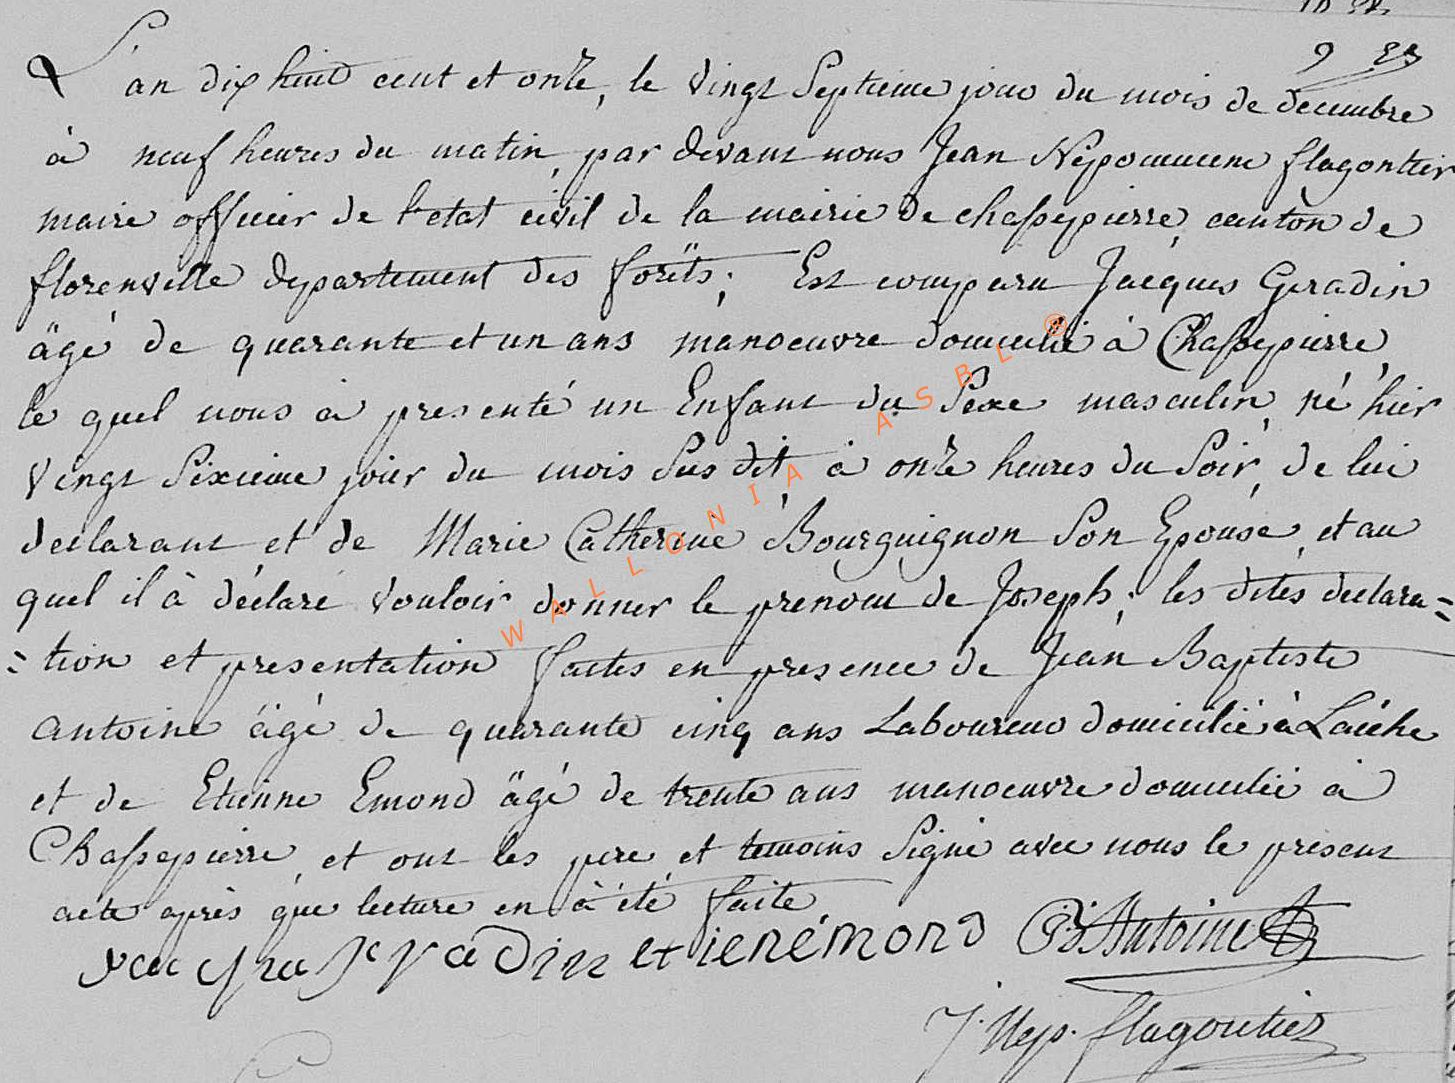 L'an dix huit cent et onze, le vingt Septieme jour du mois de decembre
à neuf heures du matin, par devant nous Jean Népomucene flagontier
maire officier de l'etat civil de la mairie de chassepierre, canton de
florenville departement des forêts; Est comparu Jacques Geradin
âgé de quarante et un ans manoeuvre domicilié à Chassepierre,
le quel nous à presenté un Enfant du Sexe masculin, né hier
vingt Sixieme jour du mois Sus dit à onze heures du Soir, de lui
declarant et de Marie Catherine Bourguignon Son Epouse, et au
quel il à déclaré vouloir donner le prenom de Joseph; les dites declara=
=tion et presentation faites en presence de Jean Baptiste
Antoine âgé de quarante cinq ans Laboureur domicilié à Laiche
et de Etienne Emond âgé de trente ans manoeuvre domicilié à
Chassepierre, et ont les pere et temoins Signé avec nous le present
acte après que lecture en à été faite
etienémond Antoine
J. Nep. flagontier
WALLONIA ASBL ®